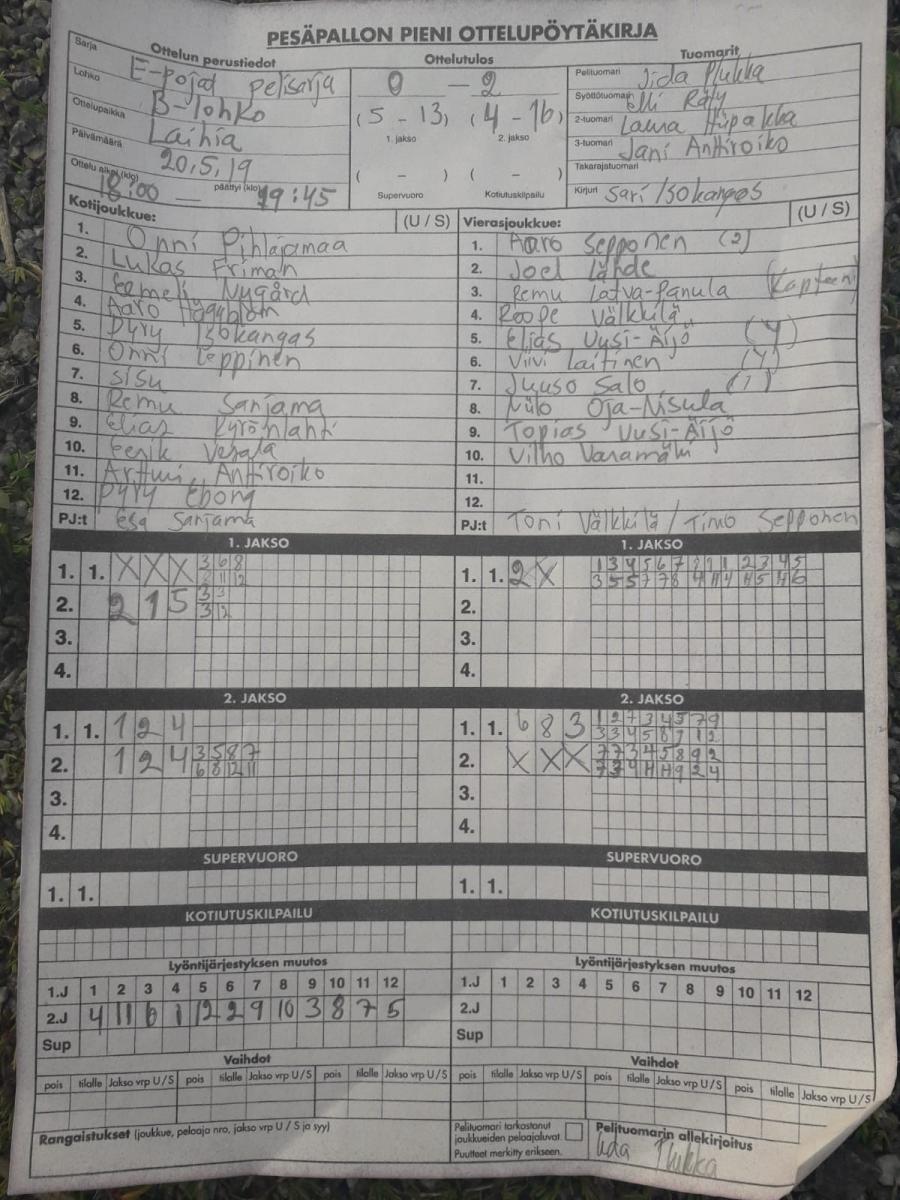 PESÄPALLON PIENI OTTELUPÖYTÄKIRJA
Ottelun perustiedot
Sarja E-pojat pelisarja
Lohko B-lohko
Ottelupaikka Laihia
Päivämäärä 20,5,19
Ottelu alkoi (klo) 18:00 — päättyi (klo) 19:45
Ottelutulos
0 — 2
(5 - 13) (4 - 16)
1. jakso 2. jakso
( - ) ( - )
Supervuoro Kotiutuskilpailu
Tuomarit
Pelituomari Iida Plukka
Syöttötuomari Elli Räty
2-tuomari Laura Hiipakka
3-tuomari Jani Anttiroiko
Takarajatuomari
Kirjuri Sari Isokangas
Kotijoukkue: (U / S)
1. Onni Pihlajamaa
2. Lukas Friman
3. Eemeli Nygård
4. Aaro Häggblom
5. Pyry Isokangas
6. Onni Leppinen
7. Sisu
8. Remu Sanjama
9. Elias Kyrönlahti
10. Eerik Vesala
11. Arttui Anttiroiko
12. Pyry Ebong
PJ:t Esa Sanjama
Vierasjoukkue: (U / S)
1. Aaro Sepponen (2)
2. Joel Lähde
3. Remu Latva-Panula (Kapteeni)
4. Roope Välkkilä
5. Elias Uusi-Äijö (4)
6. Viivi Laitinen (4)
7. Juuso Salo (1)
8. Niilo Oja-Nisula
9. Topias Uusi-Äijö
10. Vilho Varamäki
11.
12.
PJ:t Toni Välkkilä / Timo Sepponen
1. JAKSO
1. 1. X X X 3 6 8
8 11 12
2. 2 1 5 3 3
3 12
3.
4.
1. JAKSO
1. 1. 2 X
2.
3.
4.
2. JAKSO
1. 1. 1 2 4
2. 1 2 4 3 5 8 7
6 8 12 11
3.
4.
2. JAKSO
1. 1. 6 8 3 1 2 7 3 4 5 7 9
2. X X X
3.
4.
SUPERVUORO
1. 1.
SUPERVUORO
1. 1.
KOTIUTUSKILPAILU
KOTIUTUSKILPAILU
Lyöntijärjestyksen muutos
1.J 1 2 3 4 5 6 7 8 9 10 11 12
2.J 4 11 6 1 12 2 9 10 3 8 7 5
Sup
Lyöntijärjestyksen muutos
1.J 1 2 3 4 5 6 7 8 9 10 11 12
2.J
Sup
Vaihdot
pois tilalle Jakso vrp U/S pois tilalle Jakso vrp U/S pois tilalle Jakso vrp U/S
Vaihdot
pois tilalle Jakso vrp U/S pois tilalle Jakso vrp U/S pois tilalle Jakso vrp U/S
Rangaistukset (joukkue, pelaaja nro, jakso vrp U / S ja syy)
Pelituomari tarkastanut
joukkueiden pelaajaluvat.
Puutteet merkitty erikseen.
Pelituomarin allekirjoitus
Iida Plukka